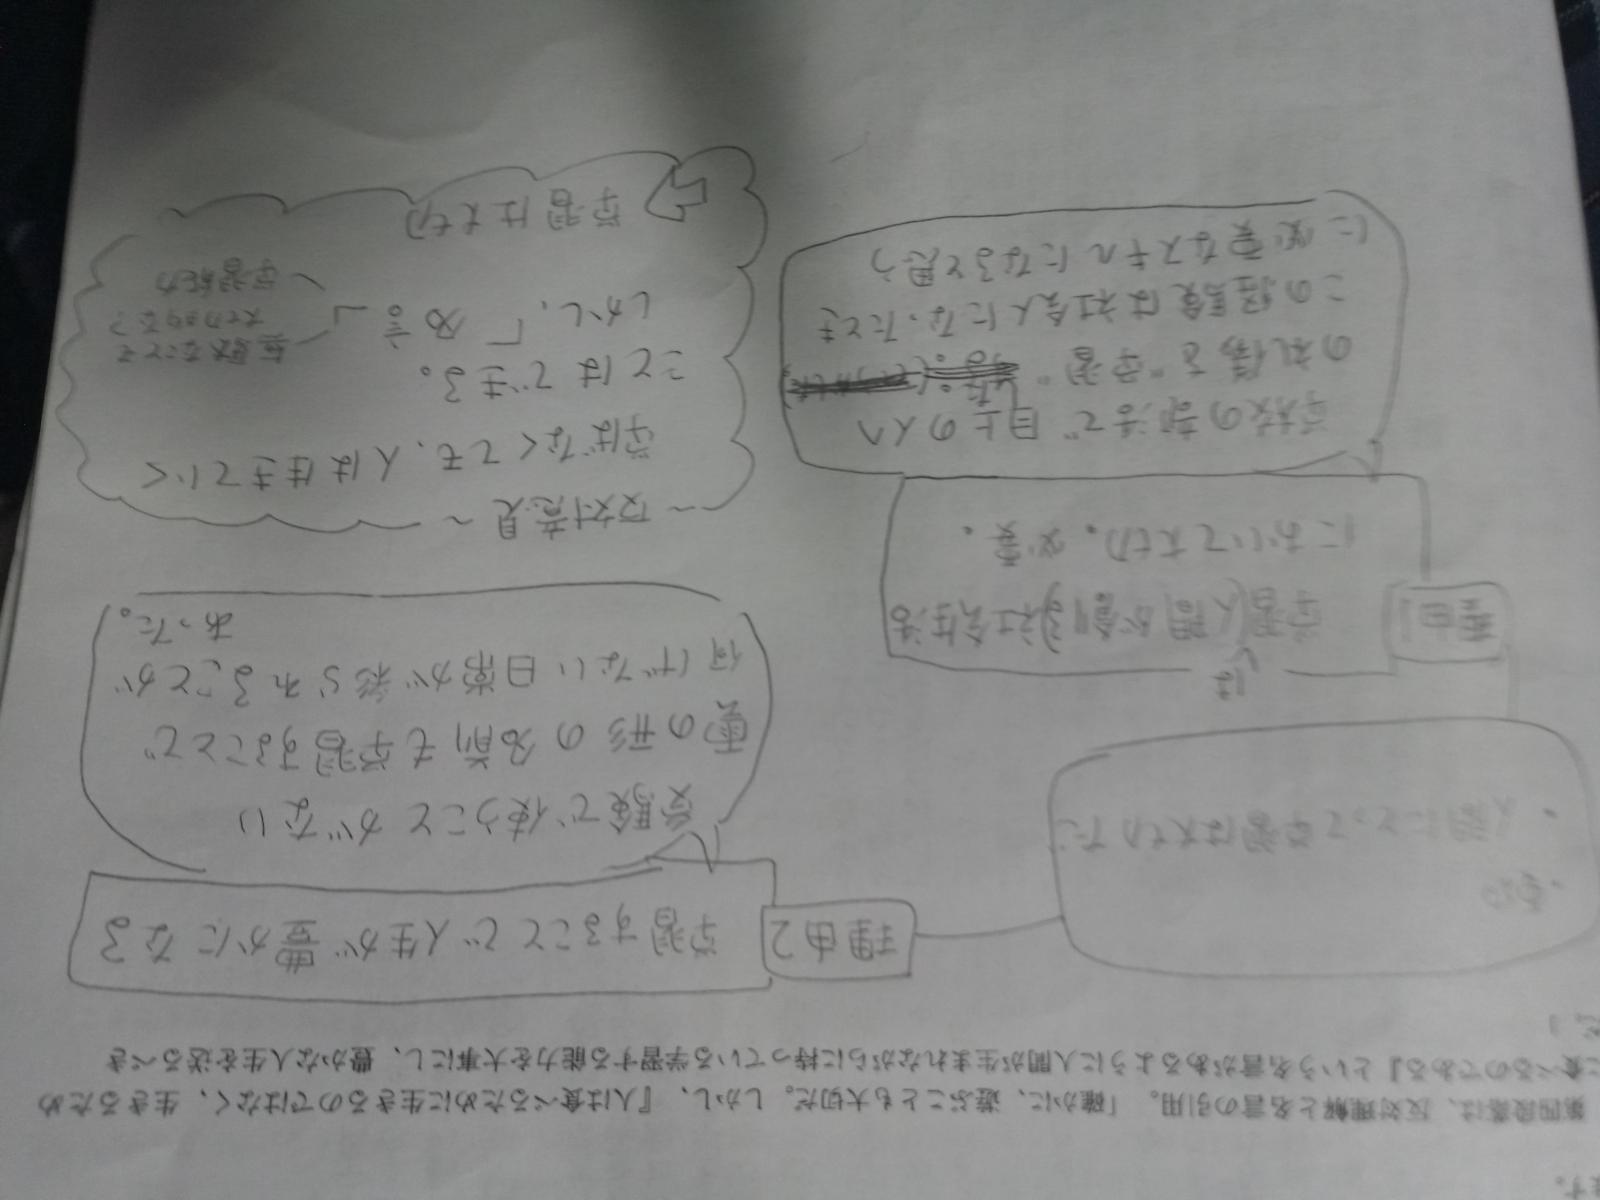 す。
第四段落は、反対理解と名言の引用。「確かに、遊ぶことも大切だ。しかし、『人は食べるために生きるのではなく、生きるため
に食べるのである』という名言があるように人間が生まれながらに持っている学習する能力を大事にし、豊かな人生を送るべき
人間にとって学習は大切だ
理由2
学習することで人生が豊かになる
受験で使うことがない
雲の形の名前も学習することで
何げない日常が彩られることが
あった。
理由1
は
学習(人間が創る)社会生活
において大切。必要。
学校の部活で目上の人へ
の礼儀を"学習"した。
この経験は社会人になったとき
に必要なスキルになると思う
〜反対意見〜
学ばなくても、人は生きていく
ことはできる。
しかし、「名言」
無駄なことも
大切する?
学習能力
学習は大切